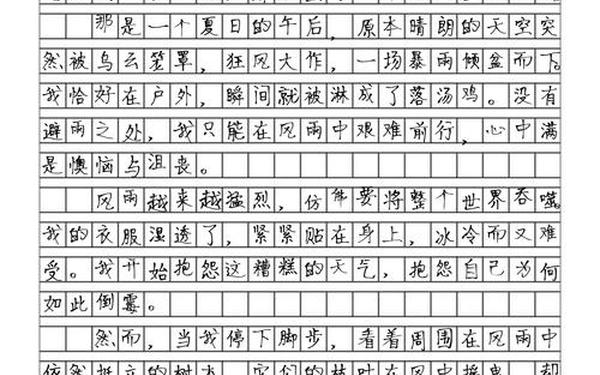 那是一个夏日的午后，原本晴朗的天空突
然被乌云笼罩，狂风大作，一场暴雨倾盆而下。
我恰好在户外，瞬间就被淋成了落汤鸡。没有
避雨之处，我只能在风雨中艰难前行，心中满
是懊恼与沮丧。
风雨越来越猛烈，仿佛要将整个世界吞噬。
我的衣服湿透了，紧紧贴在身上，冰冷而又难
受。我开始抱怨这糟糕的天气，抱怨自己为何
如此倒霉。
然而，当我停下脚步，看着周围在风雨中
依然挺立的树木，它们的枝叶在风中摇曳，却